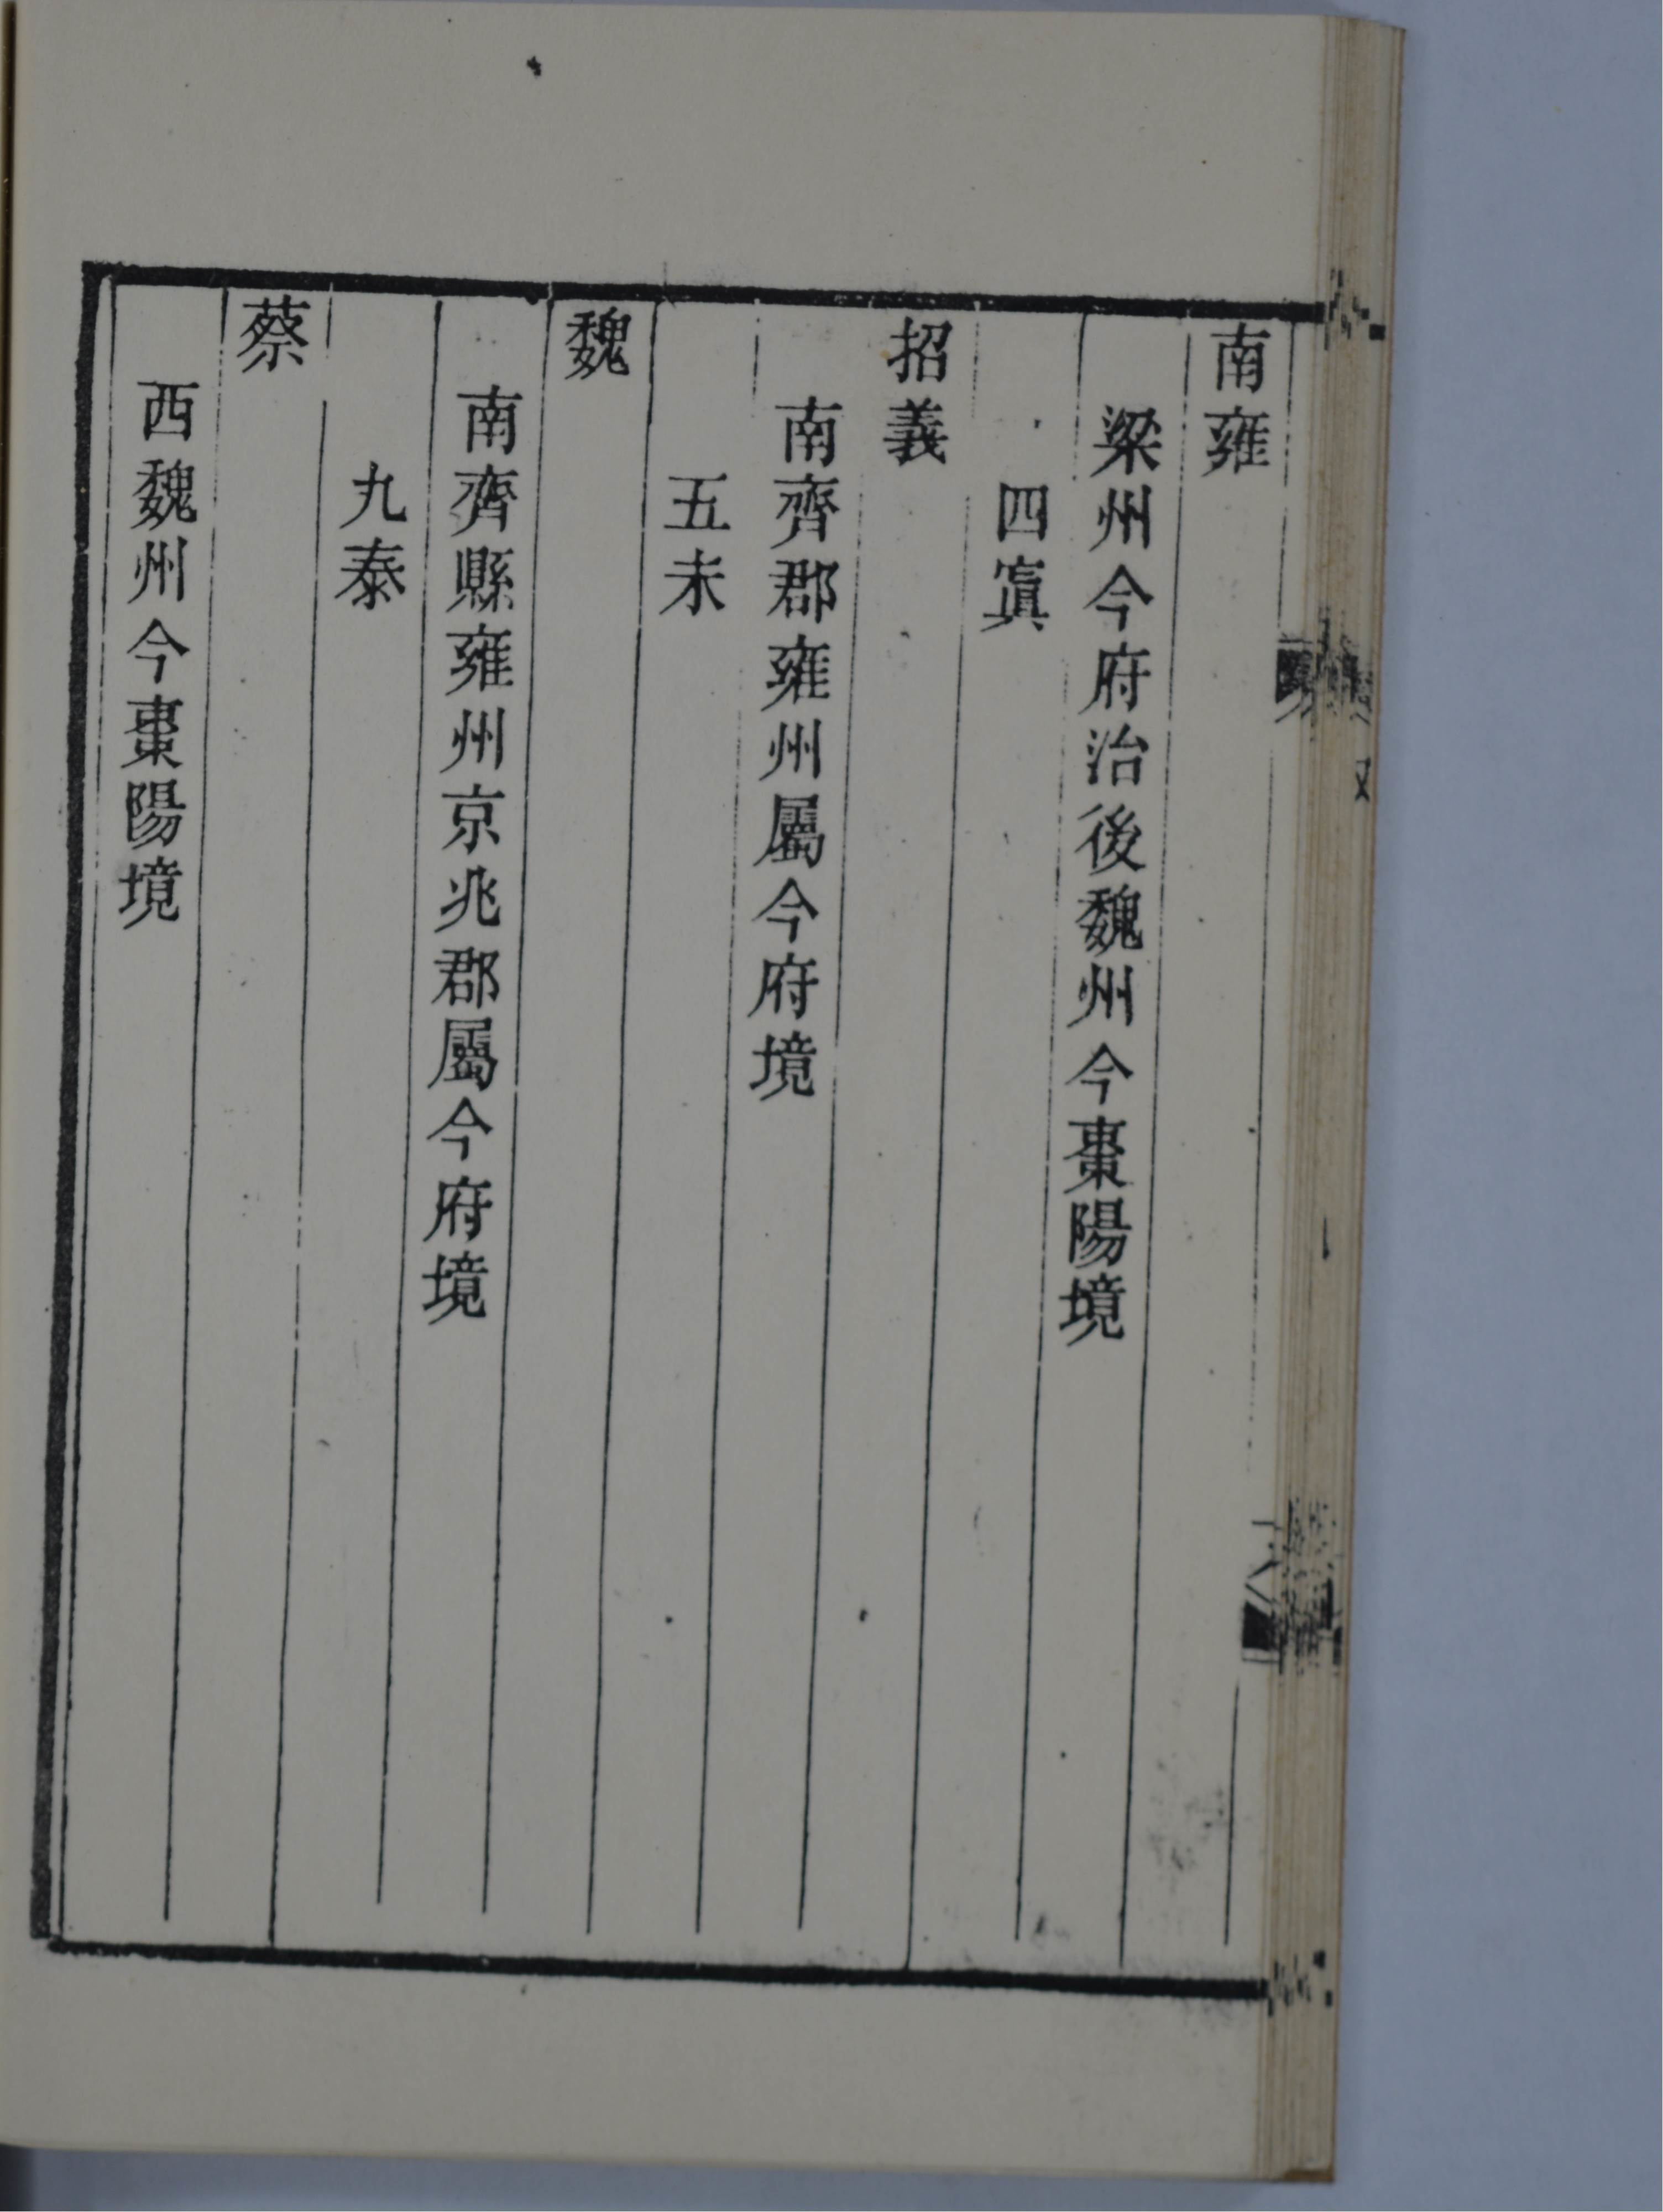 南雍
梁州今府治後魏州今棗陽境
四寘
招義
南齊郡雍州屬今府境
五未
魏
南齊縣雍州京兆郡屬今府境
九泰
蔡
西魏州今棗陽境